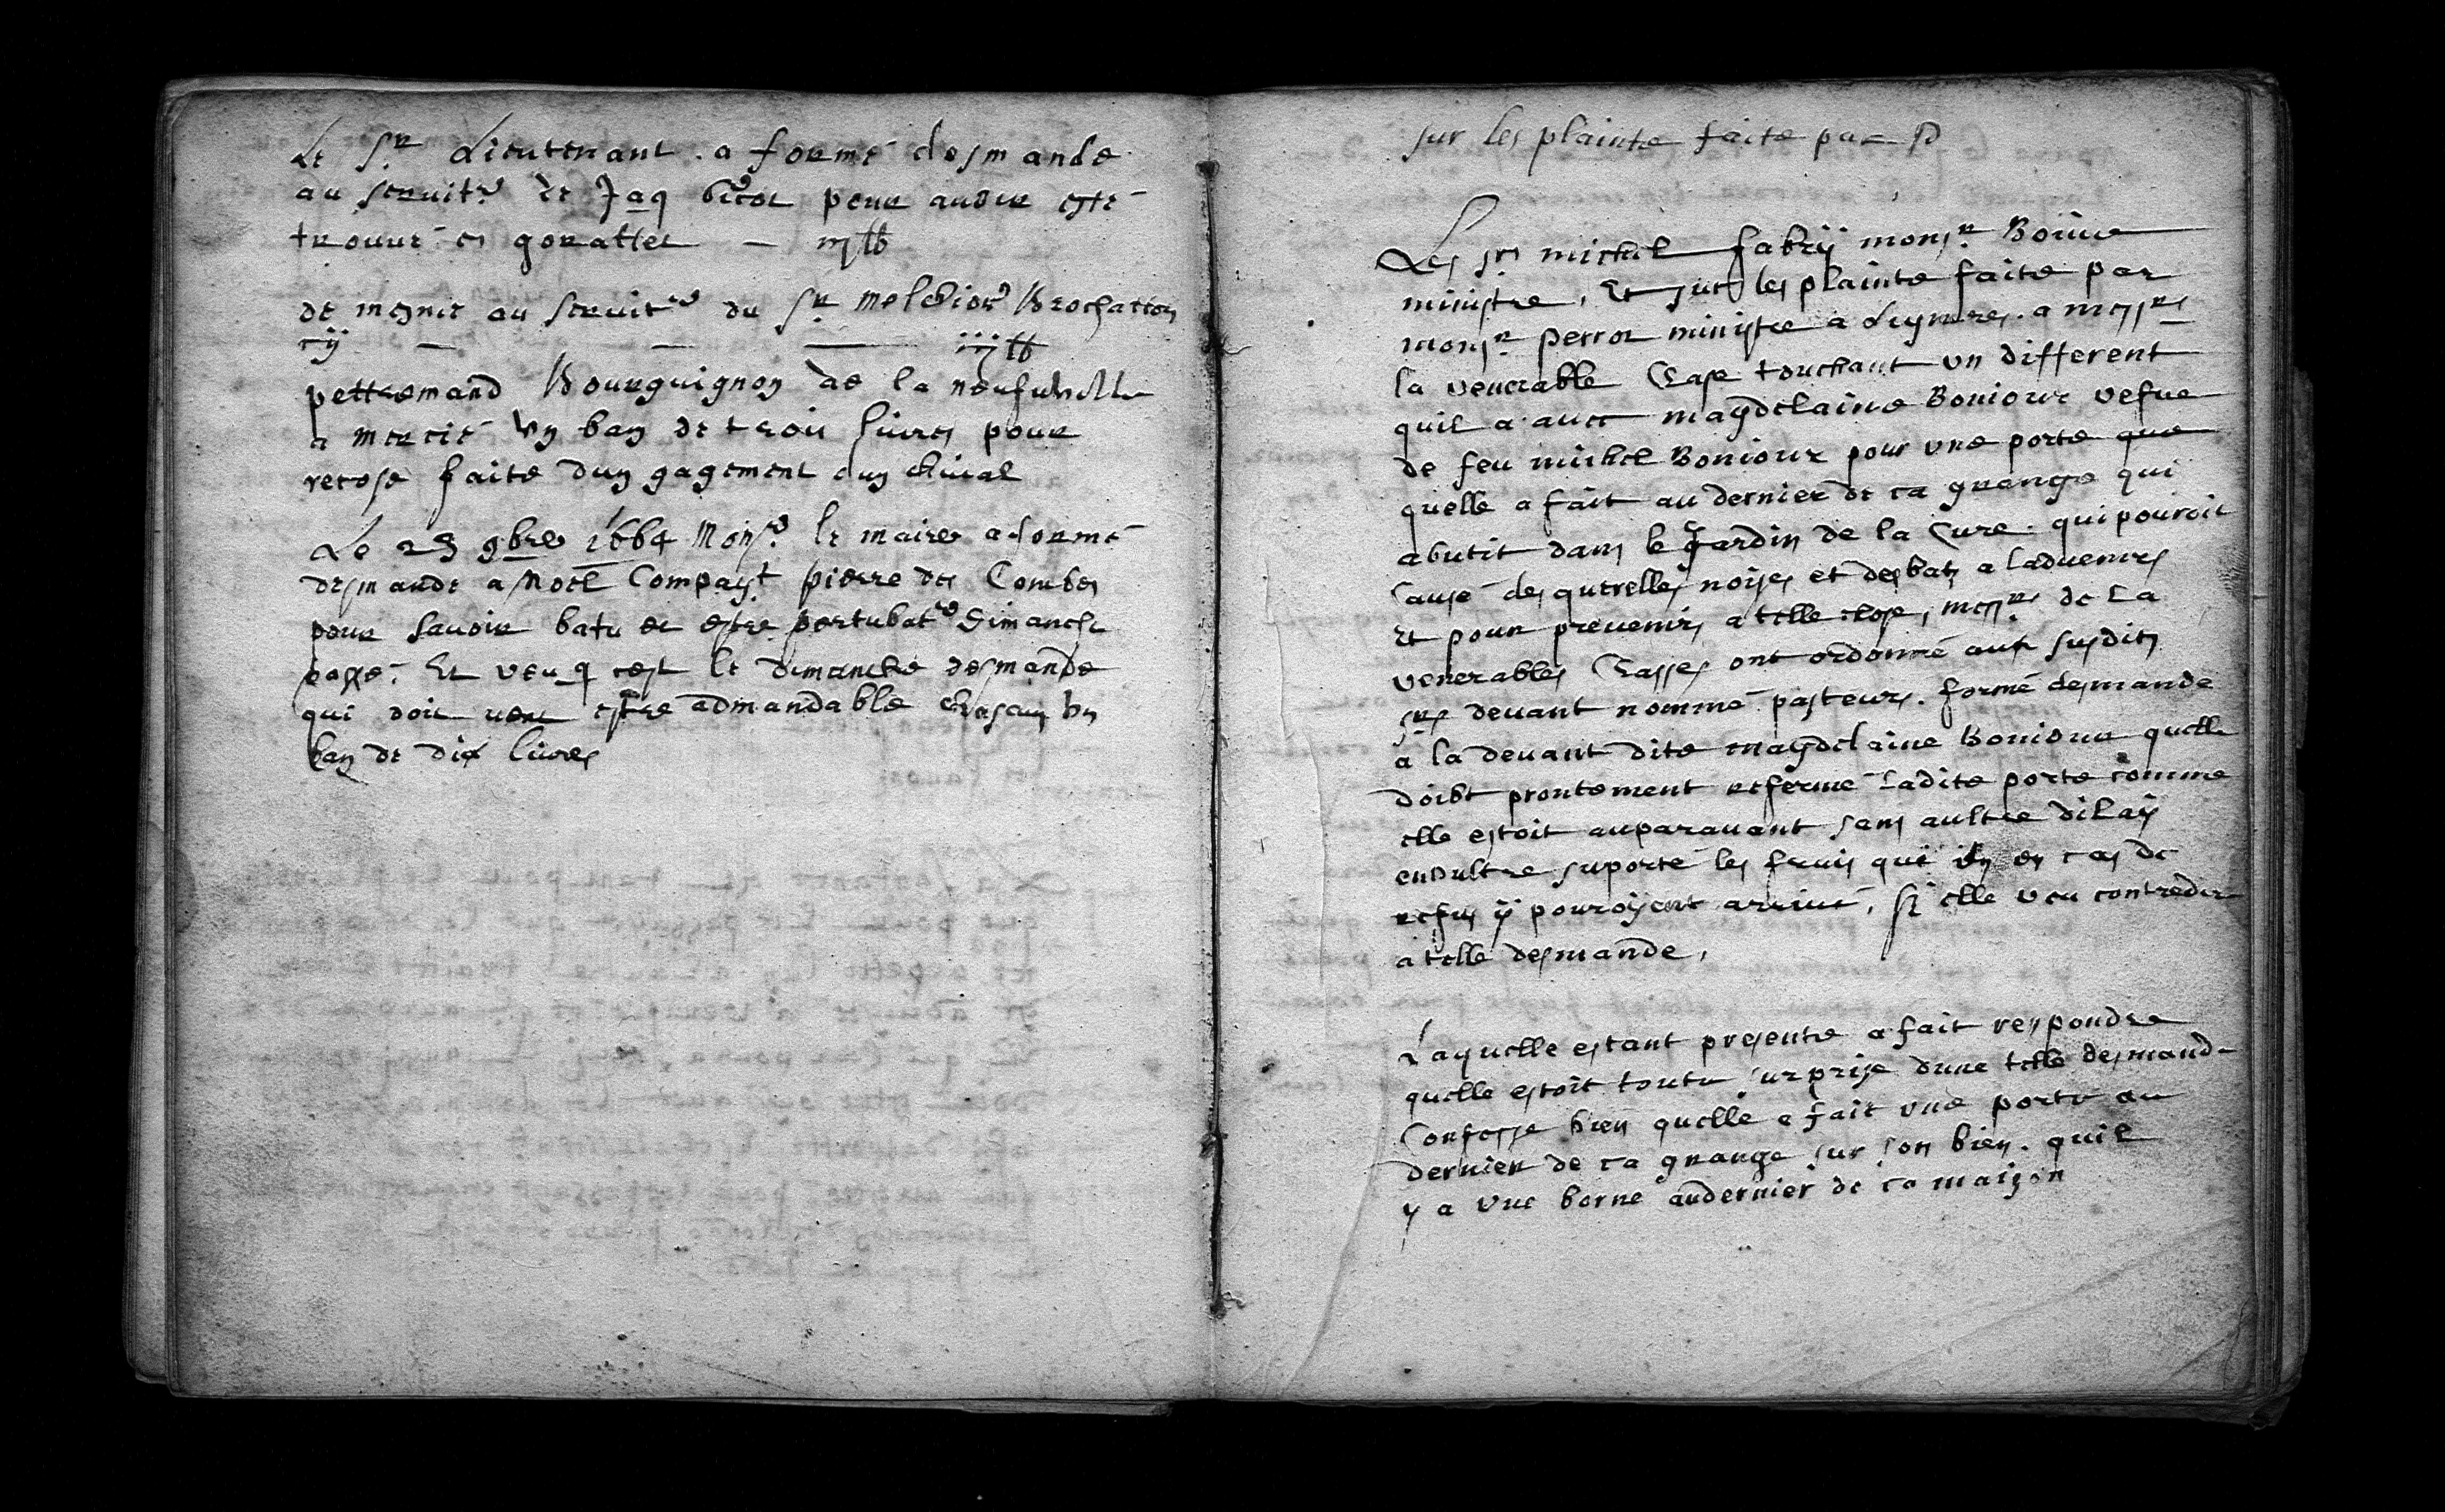 Le Sr Lieutenant a formé desmande
au seruitr de Jaq pour auoir esté
trouué es
de mesme au seruitr du Sr melchior Brochatton
cÿ — — — iij lb
pettremand Bourguignon de la neufuille
a mercié vn ban de trois liures pour
recose faite dun gagement dun cheual
Le 23 9bre 1664 Monsr le maire a formé
desmande a Noel Compagt pierre des Combes
pour sauoir batu et estre pertubatr Dimanche
passé. Et veu q cest le dimanche desmande
qui doit estre admandable chascun vn
ban de dix liures
sur les plainte faite par P
Les srs michel fabrÿ monsr
ministre, Et sur les plainte faite par
monsr perrot ministre a a messrs
la venerable Clase touchant vn different
quil a auec magdelaine Boniour vefue
de feu michel Boniour pour vne porte que
quelle a fait au dernier de ca grange qui
abutit dans le Jardin de la Cure. qui pouroit
causé des querelles noises et desbats a laduenir
Et pour preuenir a telle chose, messrs de La
venerables Classes ont ordonné aux susdits
srs deuant nommé pasteurs. formé desmande
a la deuant dite magdelaine Boniour quelle
doibt prontement refermé ladite porte comme
elle estoit auparauant sans aultre dilaÿ
enoultre suporté les frais qui en cas de
refus ÿ pouroÿent arriué, si elle veu contredir
a telle desmande,
Laquelle estant presente a fait respondre
quelle estoit toute surprise dune telle desmande
Confesse bien quelle a fait vne porte au
dernier de ca grange sur son bien. quil
y a vne borne audernier de ca maison